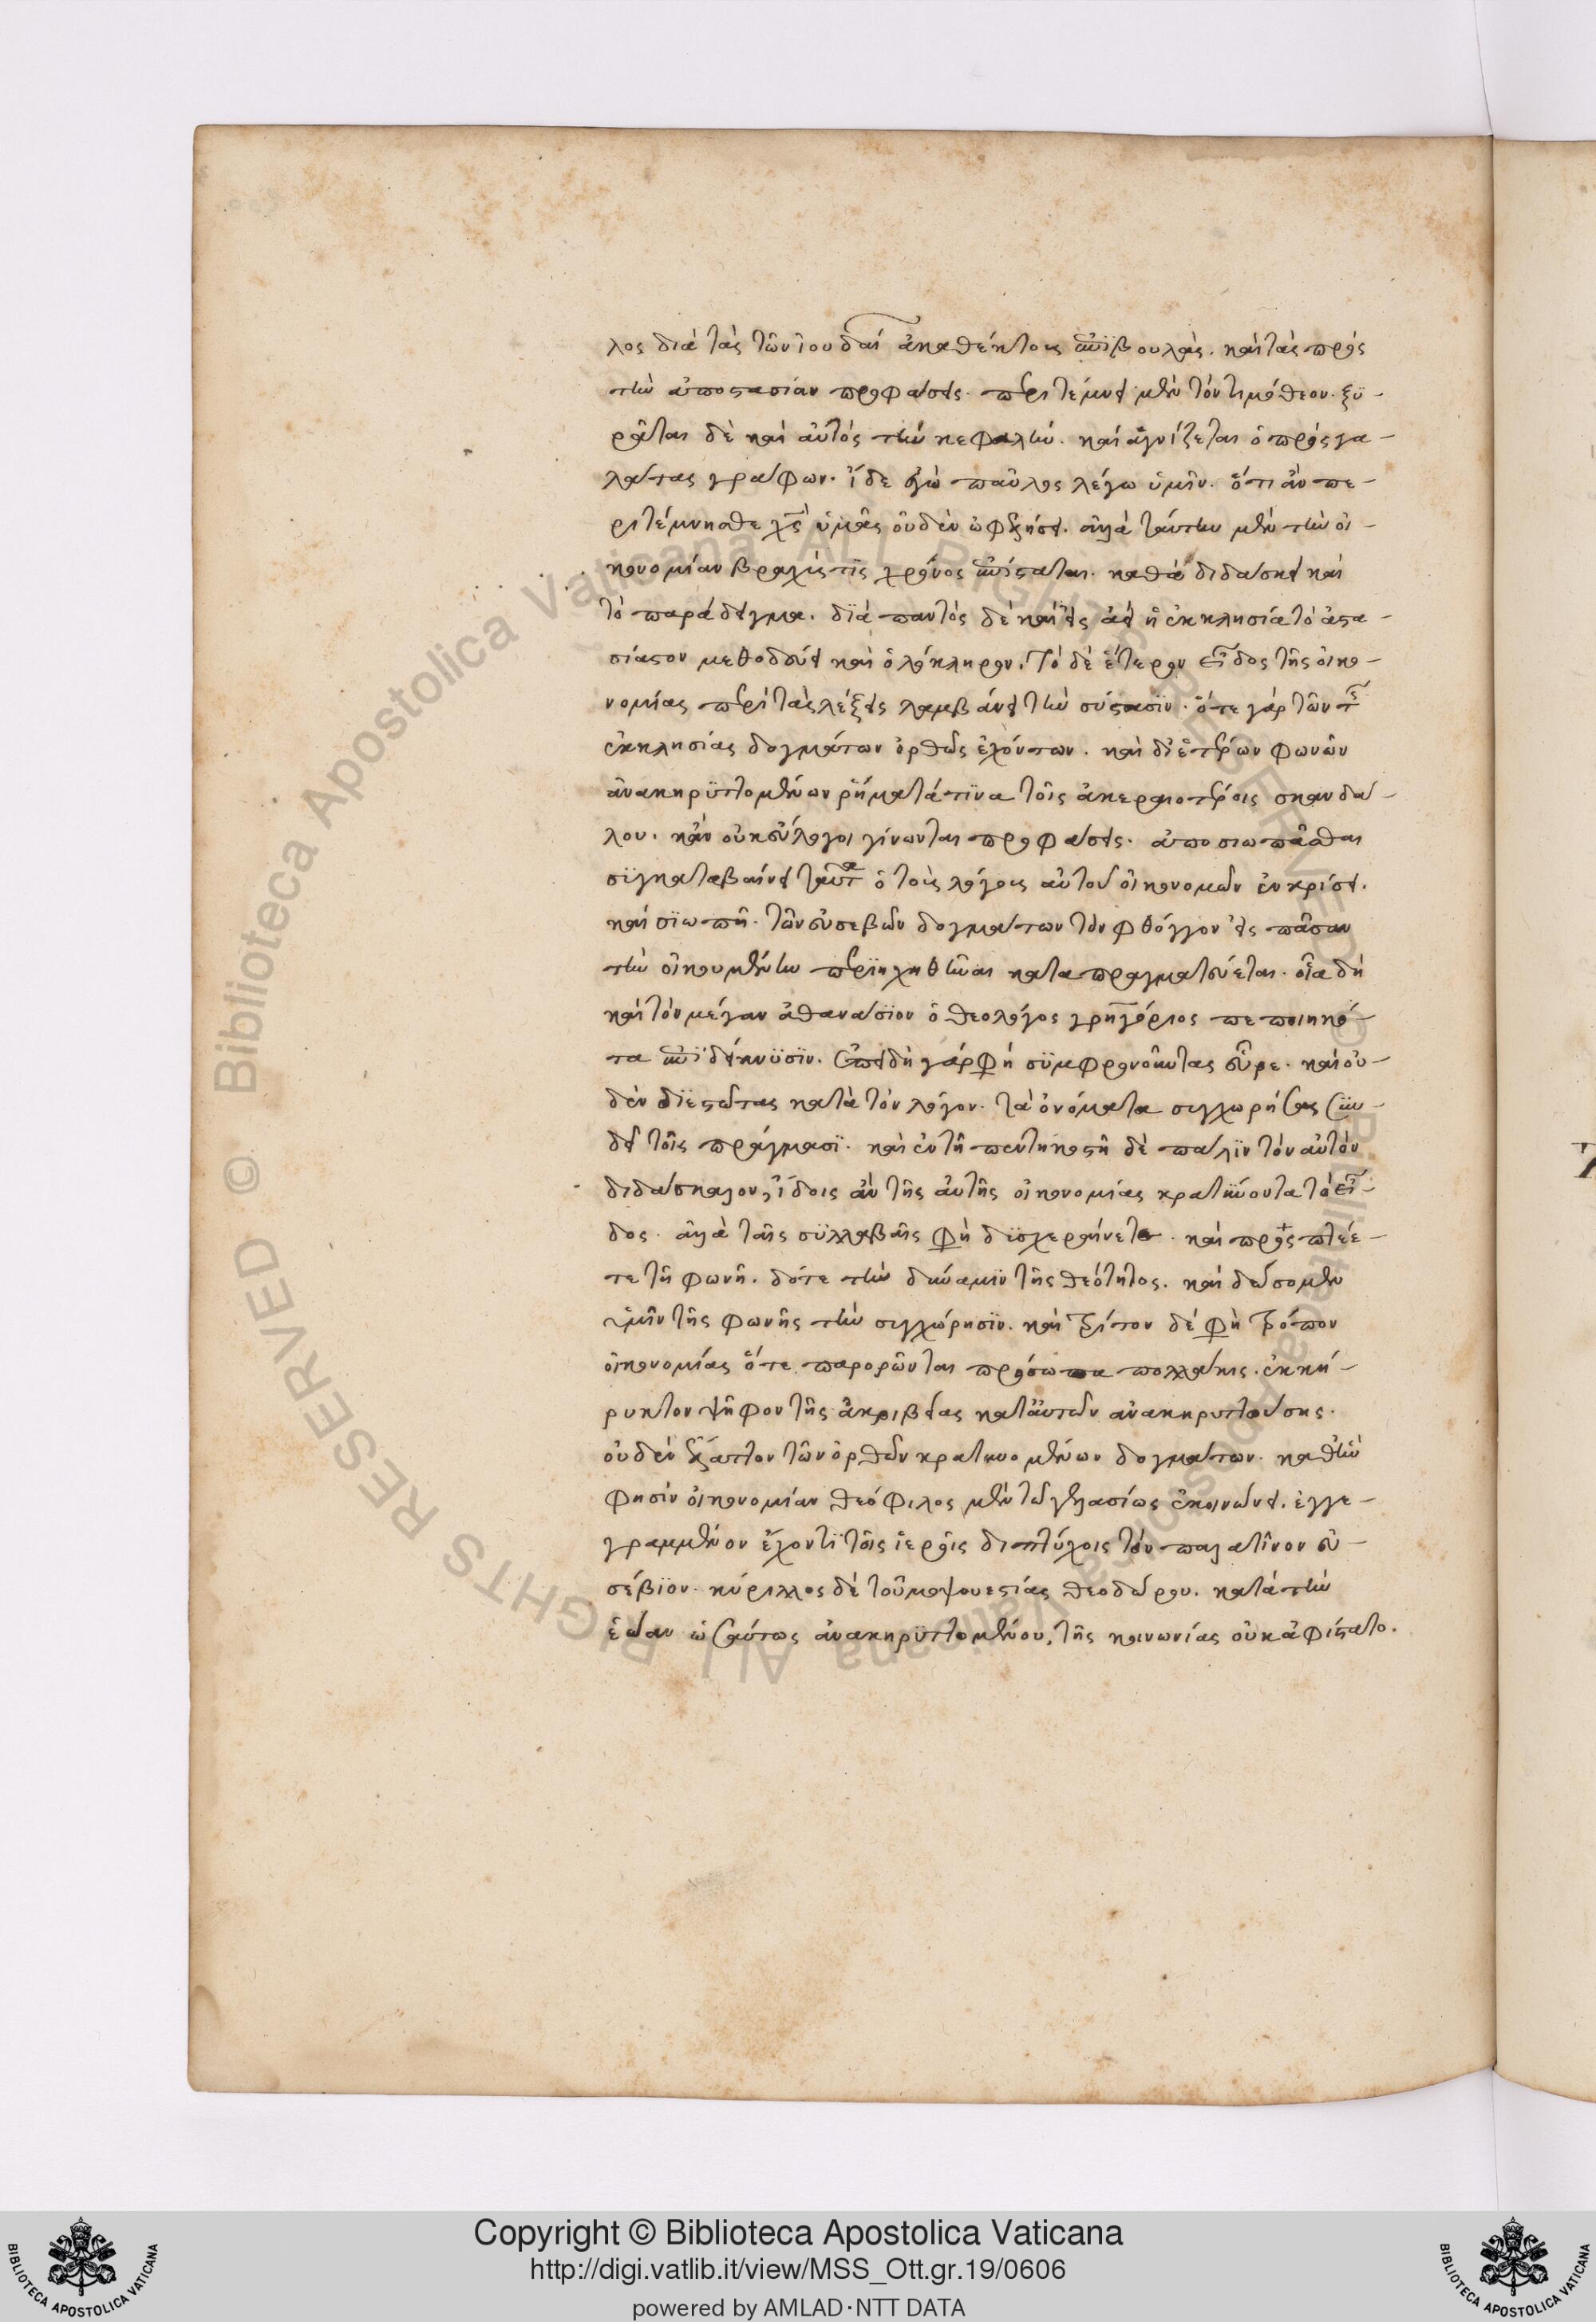 λος διὰ τὰς τῶν ἰουδαί ἀκαθέκτους ἐπιβουλὰς. καὶ τὰς πρὸς
τὴν ἀποστασίαν προφάσεις. περιτέμνει μὲν τὸν τιμόθεον. ξυ-
ρᾶται δὲ καὶ αὐτὸς τὴν κεφαλὴν. καὶ ἁγνίζεται ὁ πρὸς γα-
λάτας γράφων. ἴδε ἐγὼ παῦλος λέγω ὑμῖν. ὅτι ἂν πε-
ριτέμνησθε χς ὑμᾶς οὐδὲν ὠφελήσει. ἀλλὰ ταύτην μὲν τὴν οἰ-
κονομίαν βραχύς τις χρόνος ἐπίσταται. καθὰ διδάσκει καὶ
τὸ παράδειγμα. διὰ παντὸς δὲ καὶ εἰς ἀεὶ ἡ ἐκκλησία τὸ ἀστα-
σίαστον μεθοδεύει καὶ ὁλόκληρον. τὸ δὲ ἕτερον εἶδος τῆς οἰκο-
νομίας περὶ τὰς λέξεις λαμβάνει τὴν σύστασιν. ὅτε γὰρ τῶν τ
ἐκκλησίας δογμάτων ὀρθῶς ἐχόντων. καὶ δι ἑτέρων φωνῶν
ἀνακηρυττομένων ῥήματά τινα τοῖς ἀκεραιοτέροις σκανδά-
λου. κἂν οὐκ εὔλογοι γίνωνται προφάσεις. ἀποσιωπᾶσθαι
συγκαταβαίνει ταῦτα ὁ τοὺς λόγους αὐτοῦ οἰκονομῶν ἐν κρίσει.
καὶ σιωπῇ. τῶν εὐσεβῶν δογμάτων τὸν φθόγγον εἰς πᾶσαν
τὴν οἰκουμένην περιηχηθῆναι καταπραγματεύεται. οἷα δὴ
καὶ τὸν μέγαν ἀθανάσιον ὁ θεολόγος γρηγόριος πεποιηκό-
τα ἐπιδείκνυσιν. ἐπειδὴ γάρ φη συμφρονοῦντας εὗρε. καὶ οὐ-
δὲν διεστῶτας κατὰ τὸν λόγον. τὰ ὀνόματα συγχωρήσας συν-
δεῖ τοῖς πράγμασι. καὶ ἐν τῇ πεντηκοστῇ δὲ πάλιν τὸν αὐτὸν
διδάσκαλον, ἴδοις ἂν τῆς αὐτῆς οἰκονομίας κρατύνοντα τὸ εἶ-
δος. ἀλλὰ ταῖς συλλαβαῖς φη δυσχεραίνετε. καὶ προσπταίε-
τε τῇ φωνῇ. δότε τὴν δύναμιν τῆς θεότητος. καὶ δώσομεν
ὑμῖν τῆς φωνῆς τὴν συγχώρησιν. καὶ τρίτον δέ φη τρόπον
οἰκονομίας ὅτε παρορῶνται πρόσωπα πολλάκις. ἐκκή-
ρυκτον ψῆφον τῆς ἀκριβείας κατ αὐτῶν ἀνακηρυττούσης.
οὐδὲν ἔλαττον τῶν ὀρθῶν κρατυνομένων δογμάτων. καθ ἣν
φησὶν οἰκονομίαν θεόφιλος μὲν τῷ γελασίῳ ἐκοινώνει. ἐγγε-
γραμμένον ἔχοντι τοῖς ἱεροῖς διπτύχοις τὸν παλατῖνον εὐ-
σέβιον. κύριλλος δὲ τοῦ μοψουεστίας θεοδώρου. κατὰ τὴν
ἑώαν ὡσαύτως ἀνακηρυττομένου, τῆς κοινωνίας οὐκ ἀφίστατο.
Copyright © Biblioteca Apostolica Vaticana
http://digi.vatlib.it/view/MSS_Ott.gr.19/0606
powered by AMLAD·NTT DATA